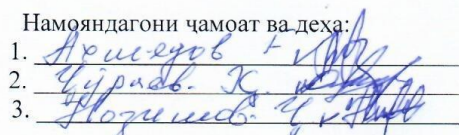 Намояндагони ҷамоат ва деҳа:
1. Ахмедов
2. Ҷӯраев. Қ.
3.